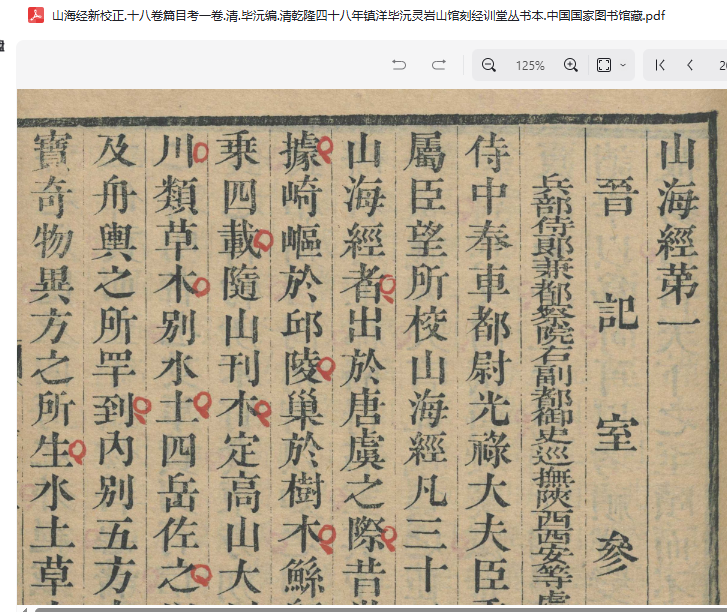 山海经新校正.十八卷篇目考一卷.清.毕沅编.清乾隆四十八年镇洋毕沅灵岩山馆刻经训堂丛书本.中国国家图书馆藏.pdf
125%
山海經苐一
晉記室參
兵部侍郎兼都察院右副都御史巡撫陝西西安等
侍中奉車都尉光祿大夫臣
屬臣望所校山海經凡三十
山海經者出於唐虞之際昔
據崎嶇於邱陵巢於樹木鯀
乘四載隨山刊木定高山大
川類草木别水土四岳佐之
及舟輿之所罕到内别五方
寶奇物異方之所生水土草